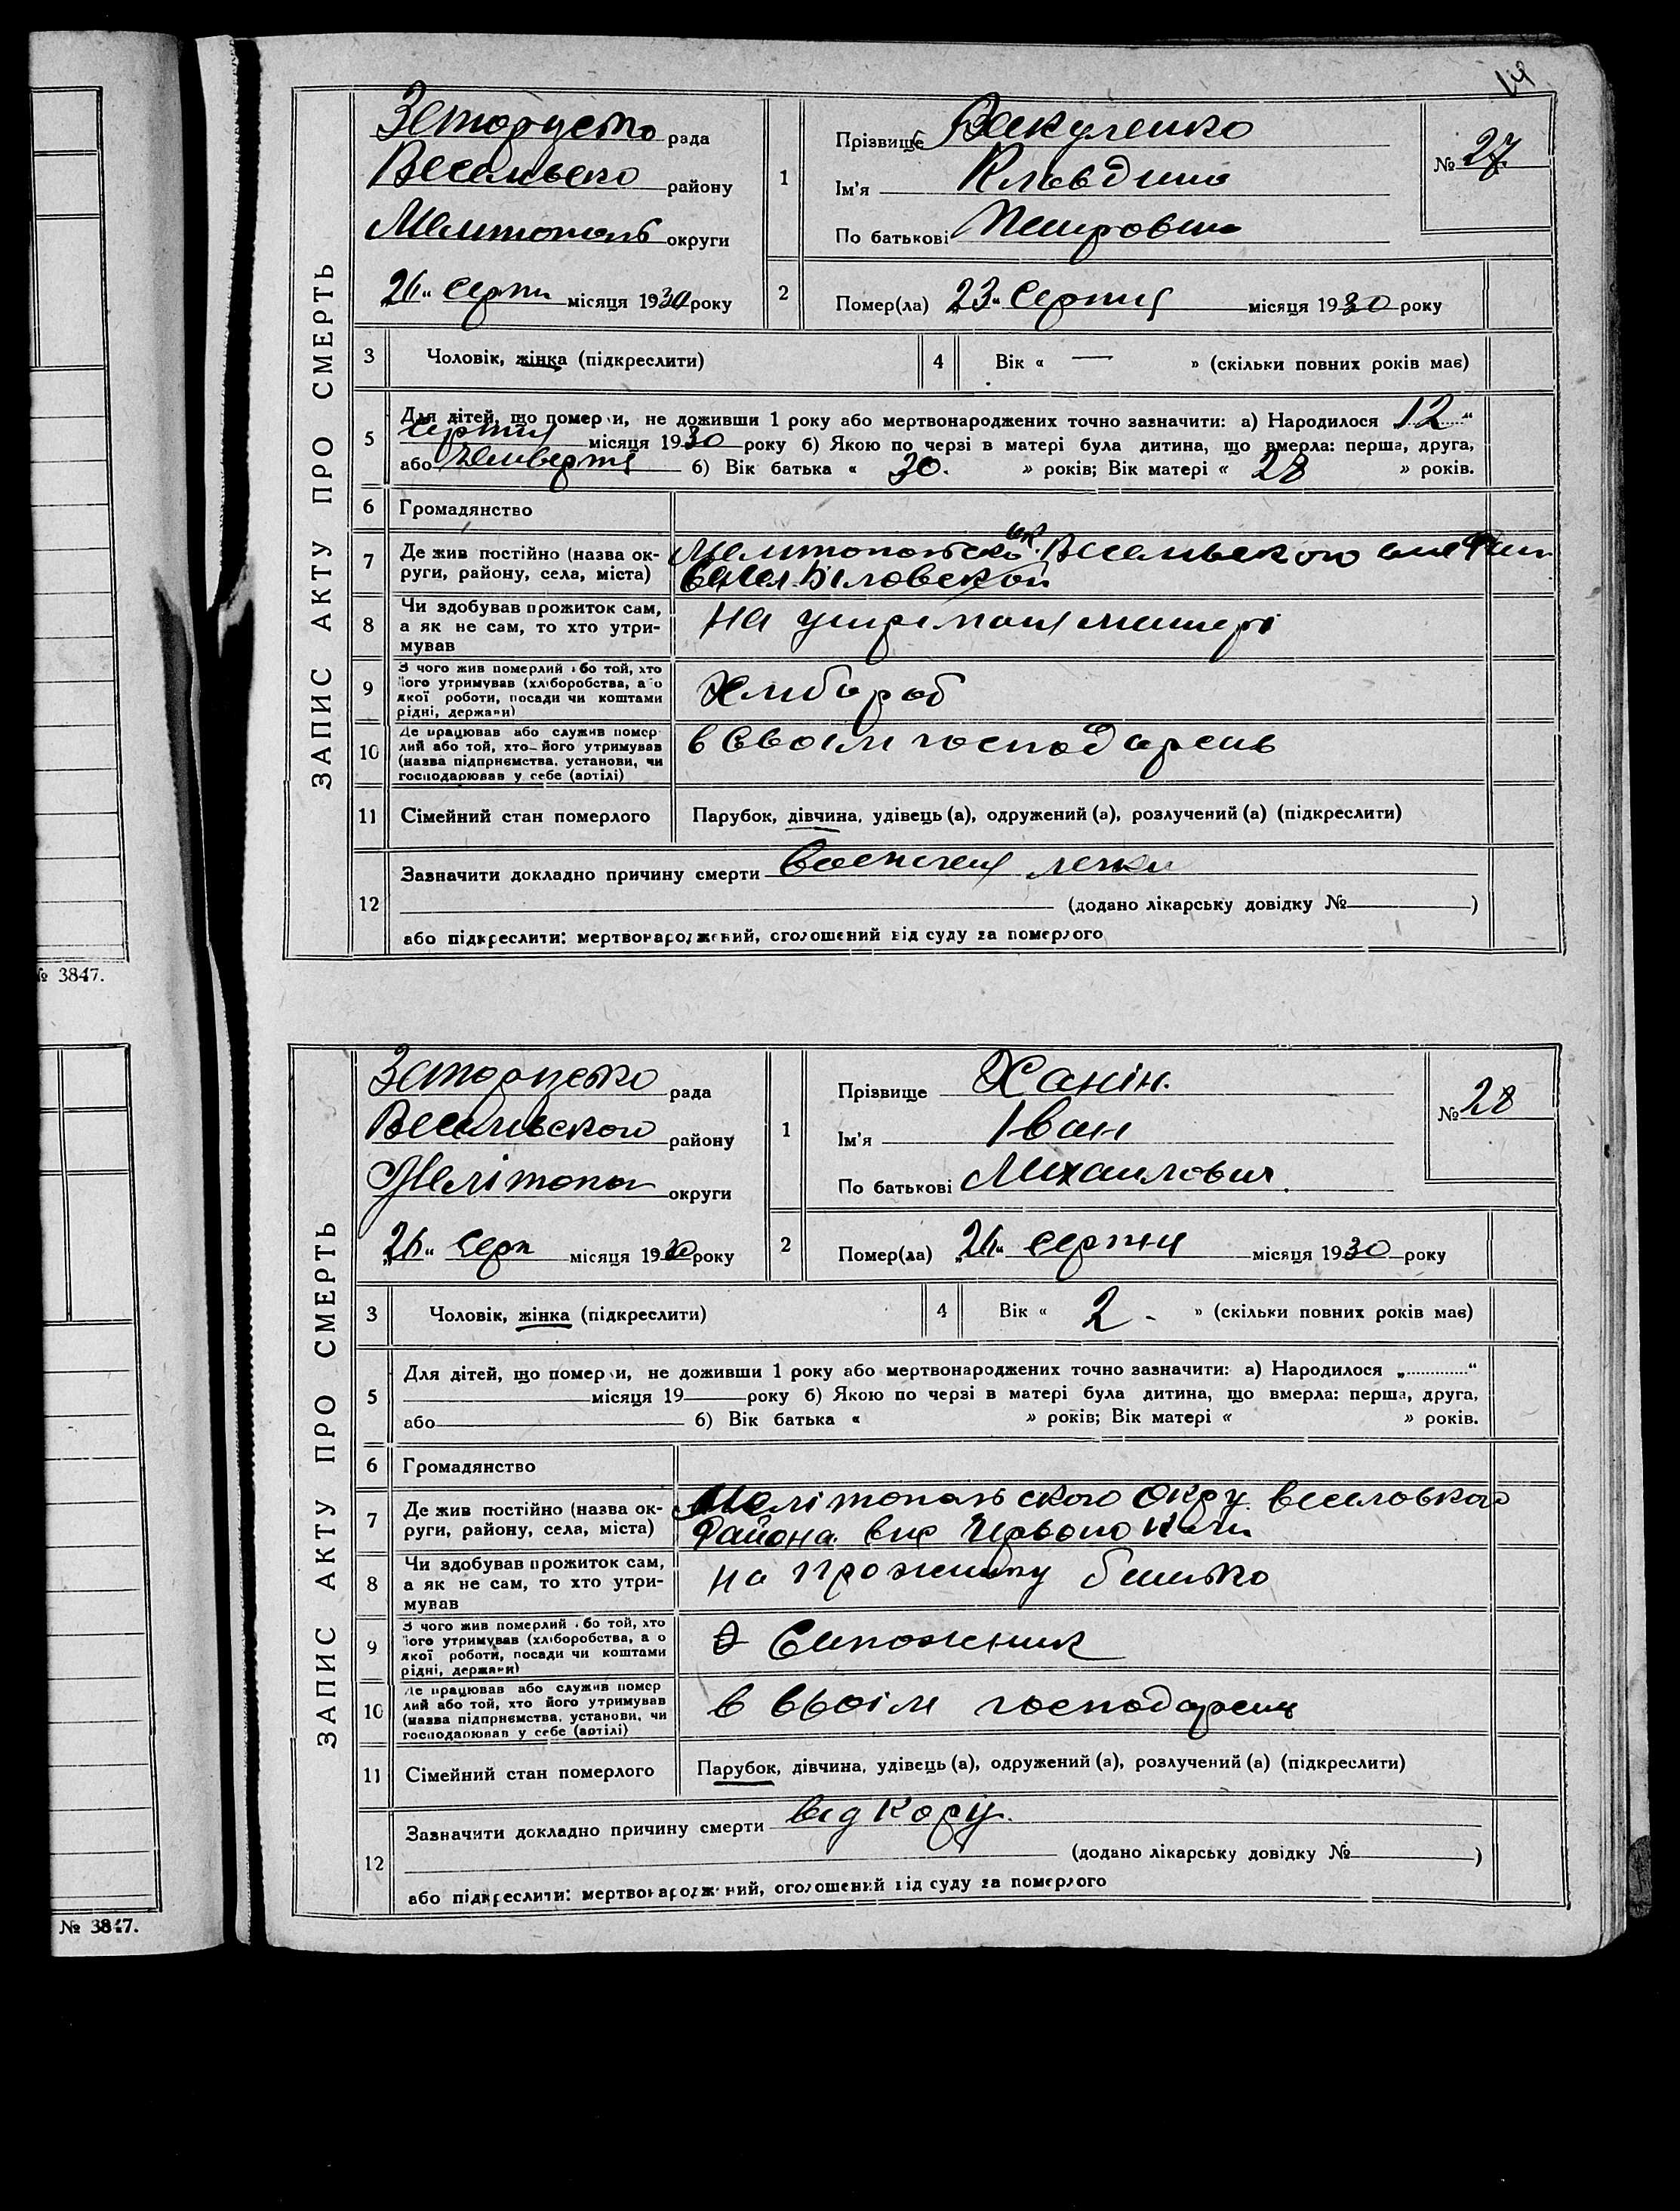 ЗАПИС АКТУ ПРО СМЕРТЬ
рада
района
Весельвско району
Мелитополь округи
26 серпн місяця 1930 року
1
Прізвище Вакуленко
Ім'я Клавдина
По батькові Петровна
№ 27
2
Помер(ла) 23 Серпня місяця 1930 року
3 Чоловік, жінка (підкреслити)
4 Вік « — » (скільки повних років має)
5 Для дітей, що померли, не доживши 1 року або мертвонароджених точно зазначити: а) Народилося 12“
серпня місяця 1930 року б) Якою по черзі в матері була дитина, що вмерла: перша, друга,
або четверта б) Вік батька « 30. » років; Вік матері « 28 » років.
6 Громадянство
7 Де жив постійно (назва ок-
руги, району, села, міста)
8 Чи здобував прожиток сам,
а як не сам, то хто утри-
мував
На матері
9 З чого жив померлий або той, хто
його утримував (хліборобства, або
якої роботи, посади чи коштами
рідні, держави)
Хлибороб
10 Де працював або служив помер
лий або той, хто його утримував
(назва підприємства, установи, чи
господарював у себе (артілі)
в своем
11 Сімейний стан померлого
Парубок, дівчина, удівець (а), одружений (а), розлучений (а) (підкреслити)
12 Зазначити докладно причину смерти
(додано лікарську довідку № )
або підкреслити: мертвонароджений, оголошений від суду за померлого
№ 3847.
ЗАПИС АКТУ ПРО СМЕРТЬ
рада
Весельвского району
Мелітопол округи
„26“ Серп місяця 1930 року
1
Прізвище Ханін.
Ім'я Іван
По батькові Михаилович.
№ 28
2
Помер(ла) „26“ серпня місяця 1930 року
3 Чоловік, жінка (підкреслити)
4 Вік « 2 - » (скільки повних років має)
5 Для дітей, що померли, не доживши 1 року або мертвонароджених точно зазначити: а) Народилося „ “
місяця 19 року б) Якою по черзі в матері була дитина, що вмерла: перша, друга,
або б) Вік батька « » років; Вік матері « » років.
6 Громадянство
7 Де жив постійно (назва ок-
руги, району, села, міста)
Мелітопольского Окру. веселовского
района
8 Чи здобував прожиток сам,
а як не сам, то хто утри-
мував
на батько
9 З чого жив померлий або той, хто
його утримував (хліборобства, або
якої роботи, посади чи коштами
рідні, держави)
Сапожник
10 Де працював або служив помер
лий або той, хто його утримував
(назва підприємства, установи, чи
господарював у себе (артілі)
в своім
11 Сімейний стан померлого
Парубок, дівчина, удівець (а), одружений (а), розлучений (а) (підкреслити)
12 Зазначити докладно причину смерти від Кору.
(додано лікарську довідку № )
або підкреслити: мертвонароджений, оголошений від суду за померлого
№ 3847.